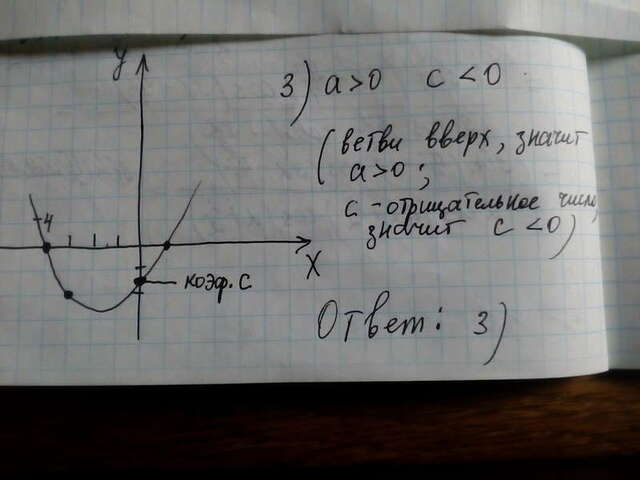 y
3) a>0 c<0
(ветви вверх, значит
a>0;
c - отрицательное число,
значит c<0)
-4
X
коэф. c
Ответ: 3)